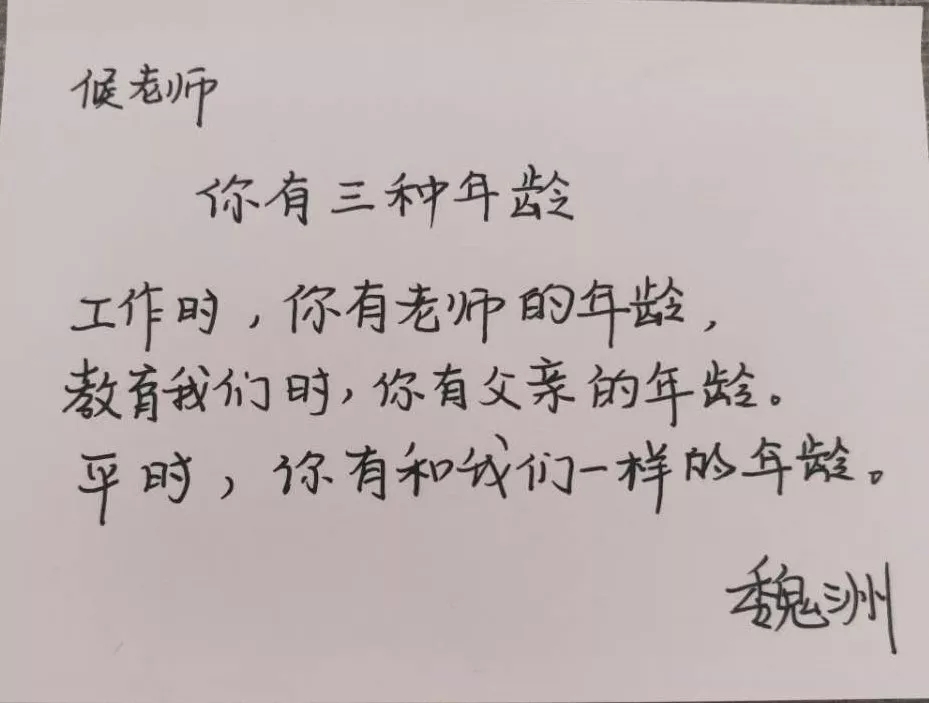 候老师
你有三种年龄
工作时，你有老师的年龄，
教育我们时，你有父亲的年龄。
平时，你有和我们一样的年龄。
魏洲